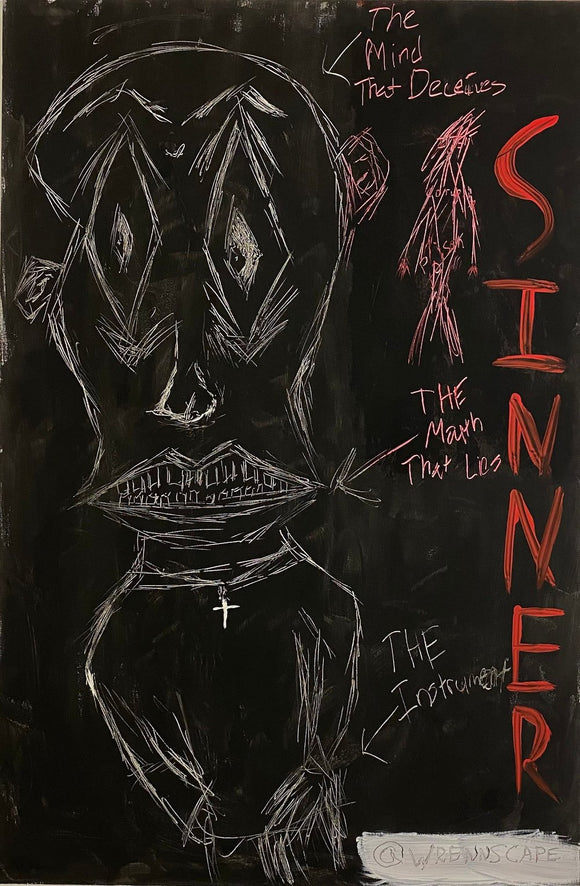 The
Mind
That Deceives
SINNER
THE
Mouth
That Lies
THE
Instrument
@WRENNSCAPE